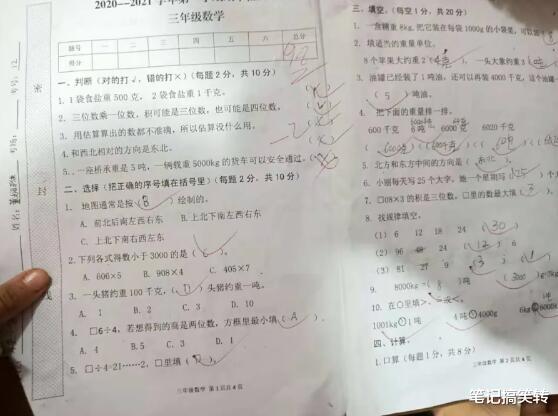 2020--2021学年第一
三年级数学
题号 一 二 三 四 五 六 七 总分
得分
98
一、判断(对的打√,错的打×)(每题2分,共10分)
1. 1袋食盐重500克,2袋食盐重1千克。
2. 三位数乘一位数,积可能是三位数,也可能是四位数。
3. 用估算算出的数都不准确,所以估算没什么用。
4. 和西北相对的方向是东北。
5. 一座桥承重是5吨,一辆载重5000kg的货车可以安全通过。
二、选择(把正确的序号填在括号里)(每题2分,共10分)
1. 地图通常是按(B)绘制的。
A. 前北后南左西右东 B. 上北下南左西右东
C. 上北下南右西左东
2. 下列各式得数小于3000的是( )。
A. 606×5 B. 908×4 C. 405×7
3. 一头猪约重100千克,(D)头猪约重一吨。
A. 1 B. 2 C. 3 D. 10
4. □6÷4,若想得到的商是两位数,方框里最小填(A)
A. 4 B. 5 C. 3 D. 1
5. □÷4=21……2,□里填( )。
三年级数学 第1页共4页
密
封
线
姓名:
考场:
考号: 12
三、填空。(每空1分,共20分)
1. 一盒糖重8kg,把它装在每袋1000g的小袋里,可以装
2. 填适当的重量单位。
8个苹果大约重2(千克) 一头大象约重3
3. 油罐已经装了1吨油,还可以再装4000千克,这个油罐
(5)吨油。
4. 把下面的重量排一排。
600千克 6吨 6000克 6020千克
5. 北方和东方中间的方向是(东北)。
6. 小丽每天写25个大字,她一个星期写(175)个大
7. □08×3的积是三位数,□里的数最大填(3)。
8. 找规律填空。
(1) 6 12 18 24 (30)
(2) 96 48 24 (12) 6
(3) 81 27 9 (3) (1)
9. 8000kg=(8)吨 (3000)g=3kg
10. 在○里填>、<或=。
1001kg○1吨 4吨○4000g 6kg○6000
四、计算。
1. 口算(每题1分,共8分)
三年级数学 第2页共4页
笔记搞笑转